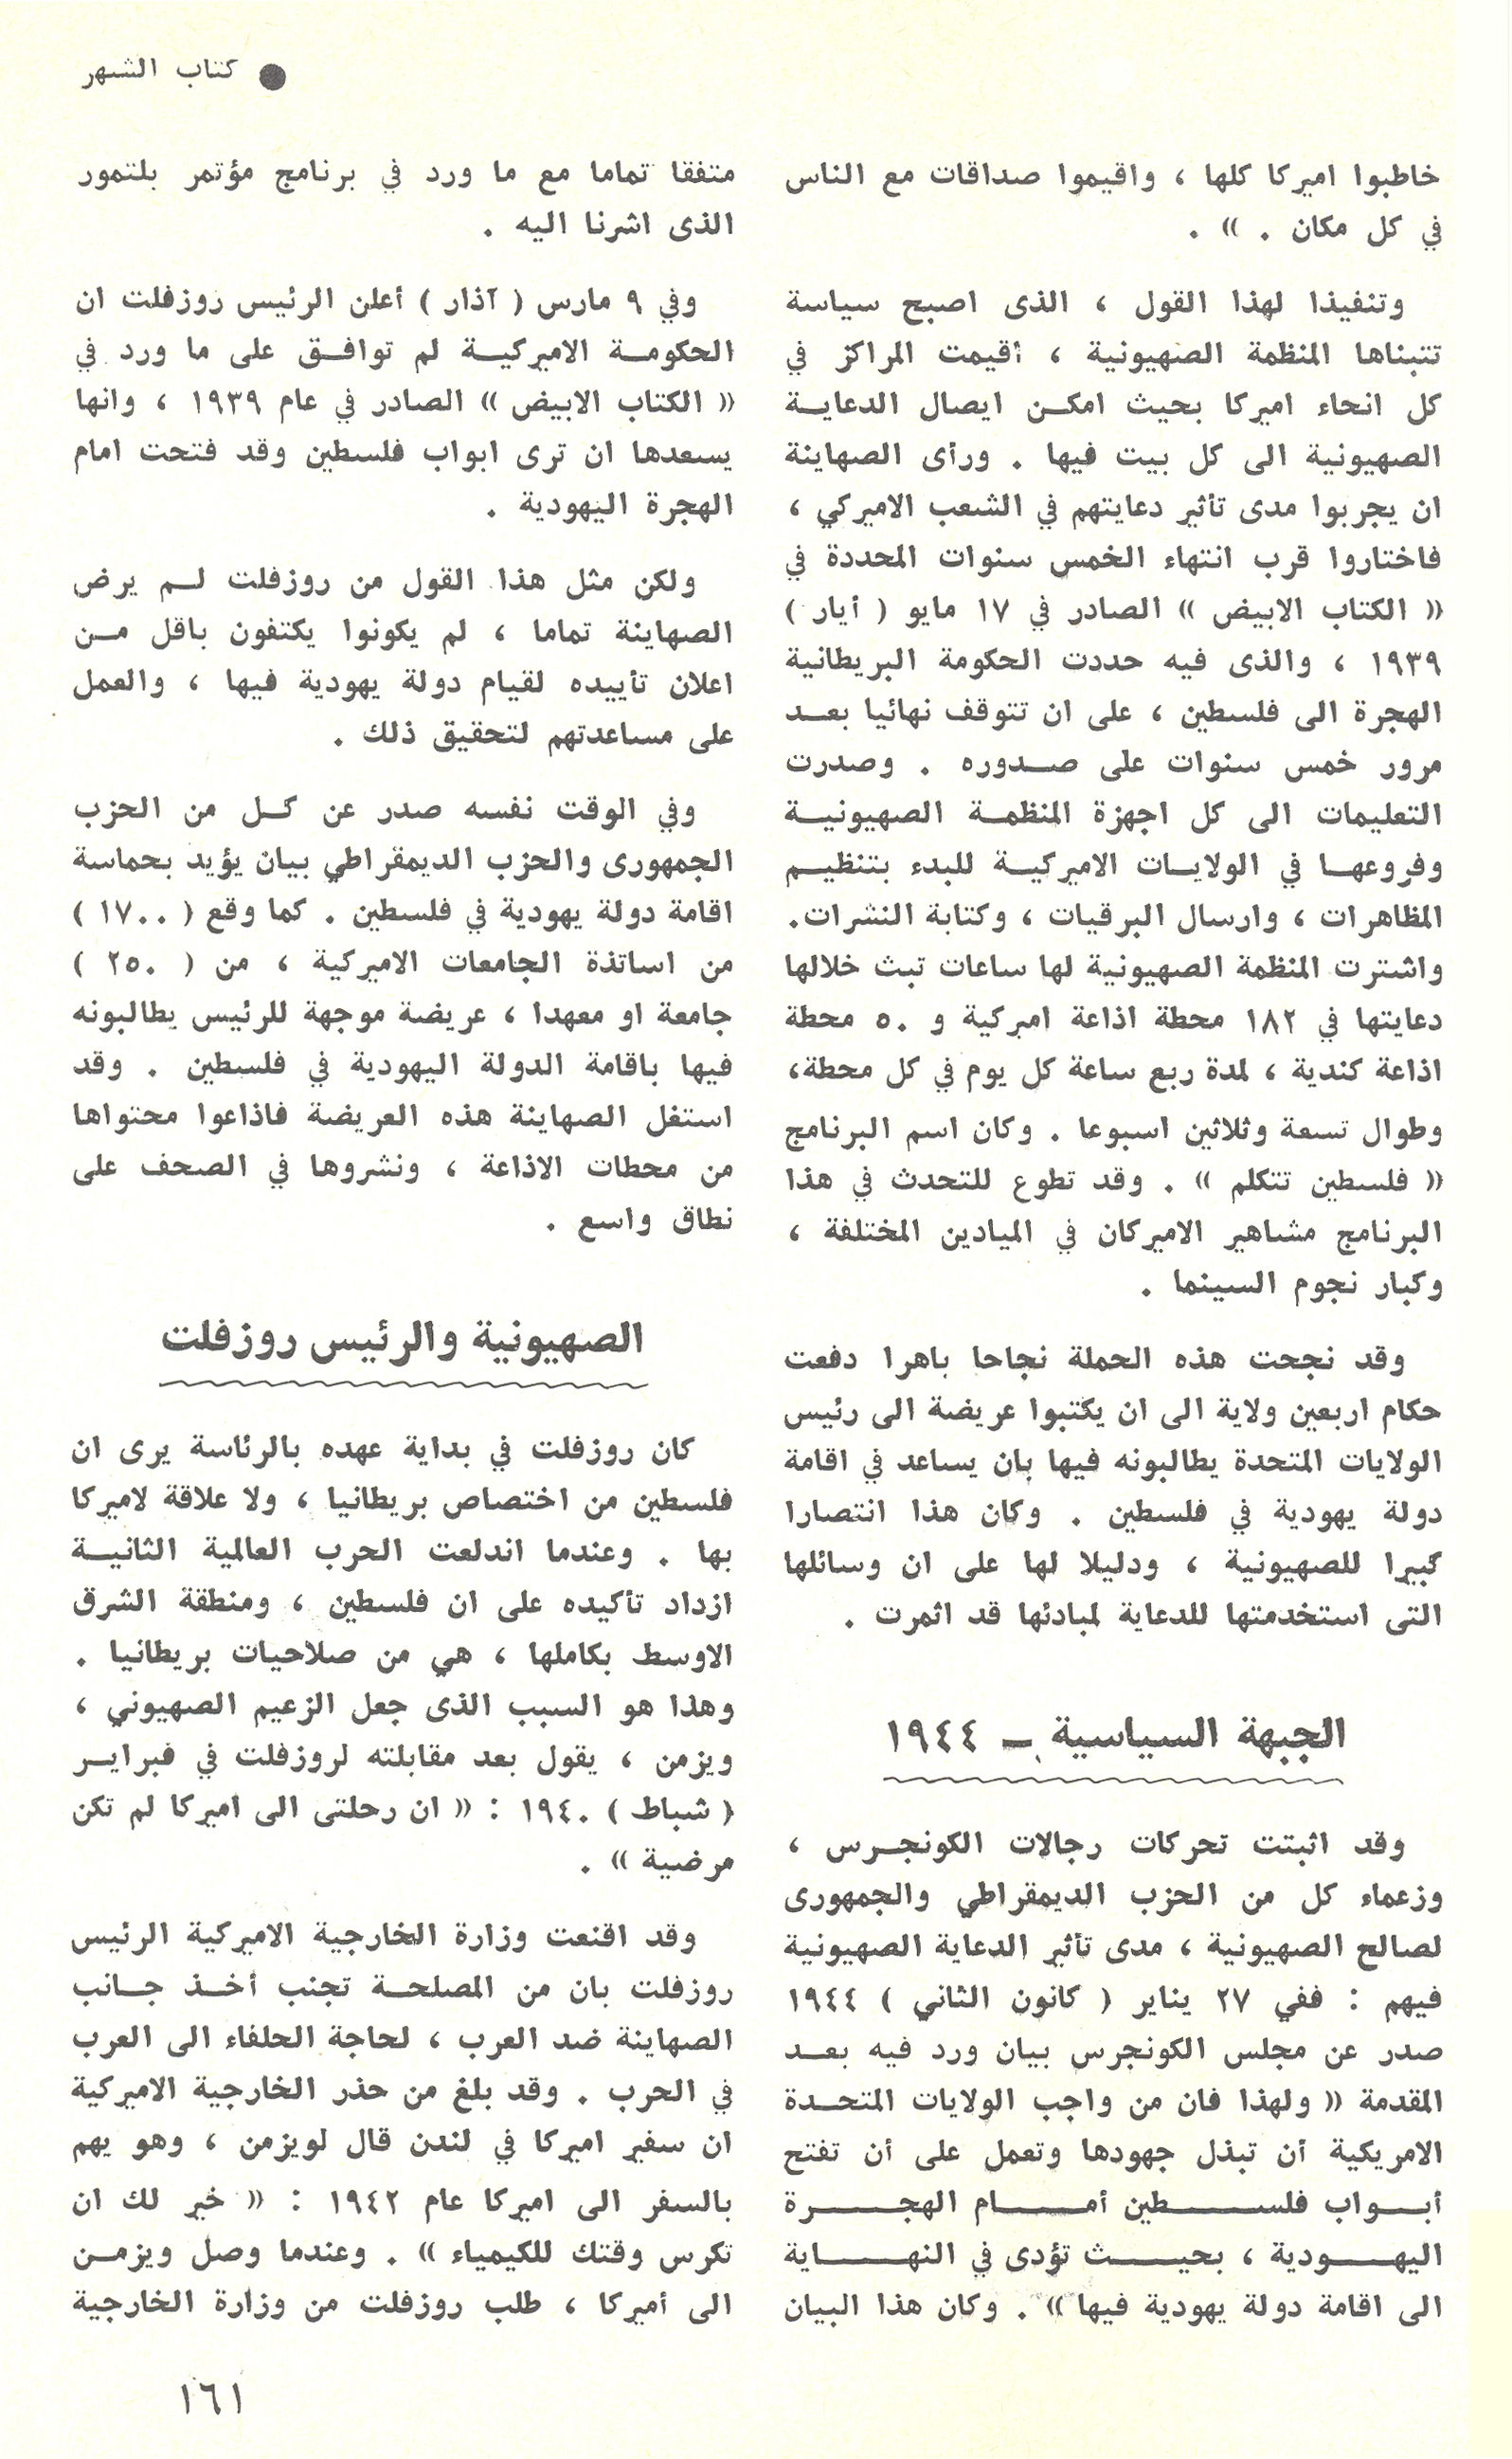 ● كتاب الشهر
خاطبوا اميركا كلها ، واقيموا صداقات مع الناس
في كل مكان . » .
وتنفيذا لهذا القول ، الذى اصبح سياسة
تتبناها المنظمة الصهيونية ، أقيمت المراكز في
كل انحاء اميركا بحيث امكن ايصال الدعاية
الصهيونية الى كل بيت فيها . ورأى الصهاينة
ان يجربوا مدى تأثير دعايتهم في الشعب الاميركي ،
فاختاروا قرب انتهاء الخمس سنوات المحددة في
« الكتاب الابيض » الصادر في ١٧ مايو ( أيار )
١٩٣٩ ، والذى فيه حددت الحكومة البريطانية
الهجرة الى فلسطين ، على ان تتوقف نهائيا بعد
مرور خمس سنوات على صدوره . وصدرت
التعليمات الى كل اجهزة المنظمة الصهيونية
وفروعها في الولايات الاميركية للبدء بتنظيم
المظاهرات ، وارسال البرقيات ، وكتابة النشرات.
واشترت المنظمة الصهيونية لها ساعات تبث خلالها
دعايتها في ١٨٢ محطة اذاعة اميركية و ٥٠ محطة
اذاعة كندية ، لمدة ربع ساعة كل يوم في كل محطة،
وطوال تسعة وثلاثين اسبوعا . وكان اسم البرنامج
« فلسطين تتكلم » . وقد تطوع للتحدث في هذا
البرنامج مشاهير الاميركان في الميادين المختلفة ،
وكبار نجوم السينما .
وقد نجحت هذه الحملة نجاحا باهرا دفعت
حكام اربعين ولاية الى ان يكتبوا عريضة الى رئيس
الولايات المتحدة يطالبونه فيها بان يساعد في اقامة
دولة يهودية في فلسطين . وكان هذا انتصارا
كبيرا للصهيونية ، ودليلا لها على ان وسائلها
التى استخدمتها للدعاية لمبادئها قد اثمرت .
الجبهة السياسية ـ ١٩٤٤
وقد اثبتت تحركات رجالات الكونجرس ،
وزعماء كل من الحزب الديمقراطي والجمهورى
لصالح الصهيونية ، مدى تأثير الدعاية الصهيونية
فيهم : ففي ٢٧ يناير ( كانون الثاني ) ١٩٤٤
صدر عن مجلس الكونجرس بيان ورد فيه بعد
المقدمة « ولهذا فان من واجب الولايات المتحدة
الامريكية أن تبذل جهودها وتعمل على أن تفتح
أبواب فلسطين أمام الهجرة
اليهودية ، بحيث تؤدى في النهاية
الى اقامة دولة يهودية فيها » . وكان هذا البيان
متفقا تماما مع ما ورد في برنامج مؤتمر بلتمور
الذى اشرنا اليه .
وفي ٩ مارس ( آذار ) أعلن الرئيس روزفلت ان
الحكومة الاميركية لم توافق على ما ورد في
« الكتاب الابيض » الصادر في عام ١٩٣٩ ، وانها
يسعدها ان ترى ابواب فلسطين وقد فتحت امام
الهجرة اليهودية .
ولكن مثل هذا القول من روزفلت لم يرض
الصهاينة تماما ، لم يكونوا يكتفون باقل من
اعلان تأييده لقيام دولة يهودية فيها ، والعمل
على مساعدتهم لتحقيق ذلك .
وفي الوقت نفسه صدر عن كل من الحزب
الجمهورى والحزب الديمقراطي بيان يؤيد بحماسة
اقامة دولة يهودية في فلسطين . كما وقع ( ١٧٠٠ )
من اساتذة الجامعات الاميركية ، من ( ٢٥٠ )
جامعة او معهدا ، عريضة موجهة للرئيس يطالبونه
فيها باقامة الدولة اليهودية في فلسطين . وقد
استغل الصهاينة هذه العريضة فاذاعوا محتواها
من محطات الاذاعة ، ونشروها في الصحف على
نطاق واسع .
الصهيونية والرئيس روزفلت
كان روزفلت في بداية عهده بالرئاسة يرى ان
فلسطين من اختصاص بريطانيا ، ولا علاقة لاميركا
بها . وعندما اندلعت الحرب العالمية الثانية
ازداد تأكيده على ان فلسطين ، ومنطقة الشرق
الاوسط بكاملها ، هي من صلاحيات بريطانيا .
وهذا هو السبب الذى جعل الزعيم الصهيوني ،
ويزمن ، يقول بعد مقابلته لروزفلت في فبراير
( شباط ) ١٩٤٠ : « ان رحلتى الى اميركا لم تكن
مرضية » .
وقد اقنعت وزارة الخارجية الاميركية الرئيس
روزفلت بان من المصلحة تجنب أخذ جانب
الصهاينة ضد العرب ، لحاجة الحلفاء الى العرب
في الحرب . وقد بلغ من حذر الخارجية الاميركية
ان سفير اميركا في لندن قال لويزمن ، وهو يهم
بالسفر الى اميركا عام ١٩٤٢ : « خير لك ان
تكرس وقتك للكيمياء » . وعندما وصل ويزمن
الى أميركا ، طلب روزفلت من وزارة الخارجية
١٦١